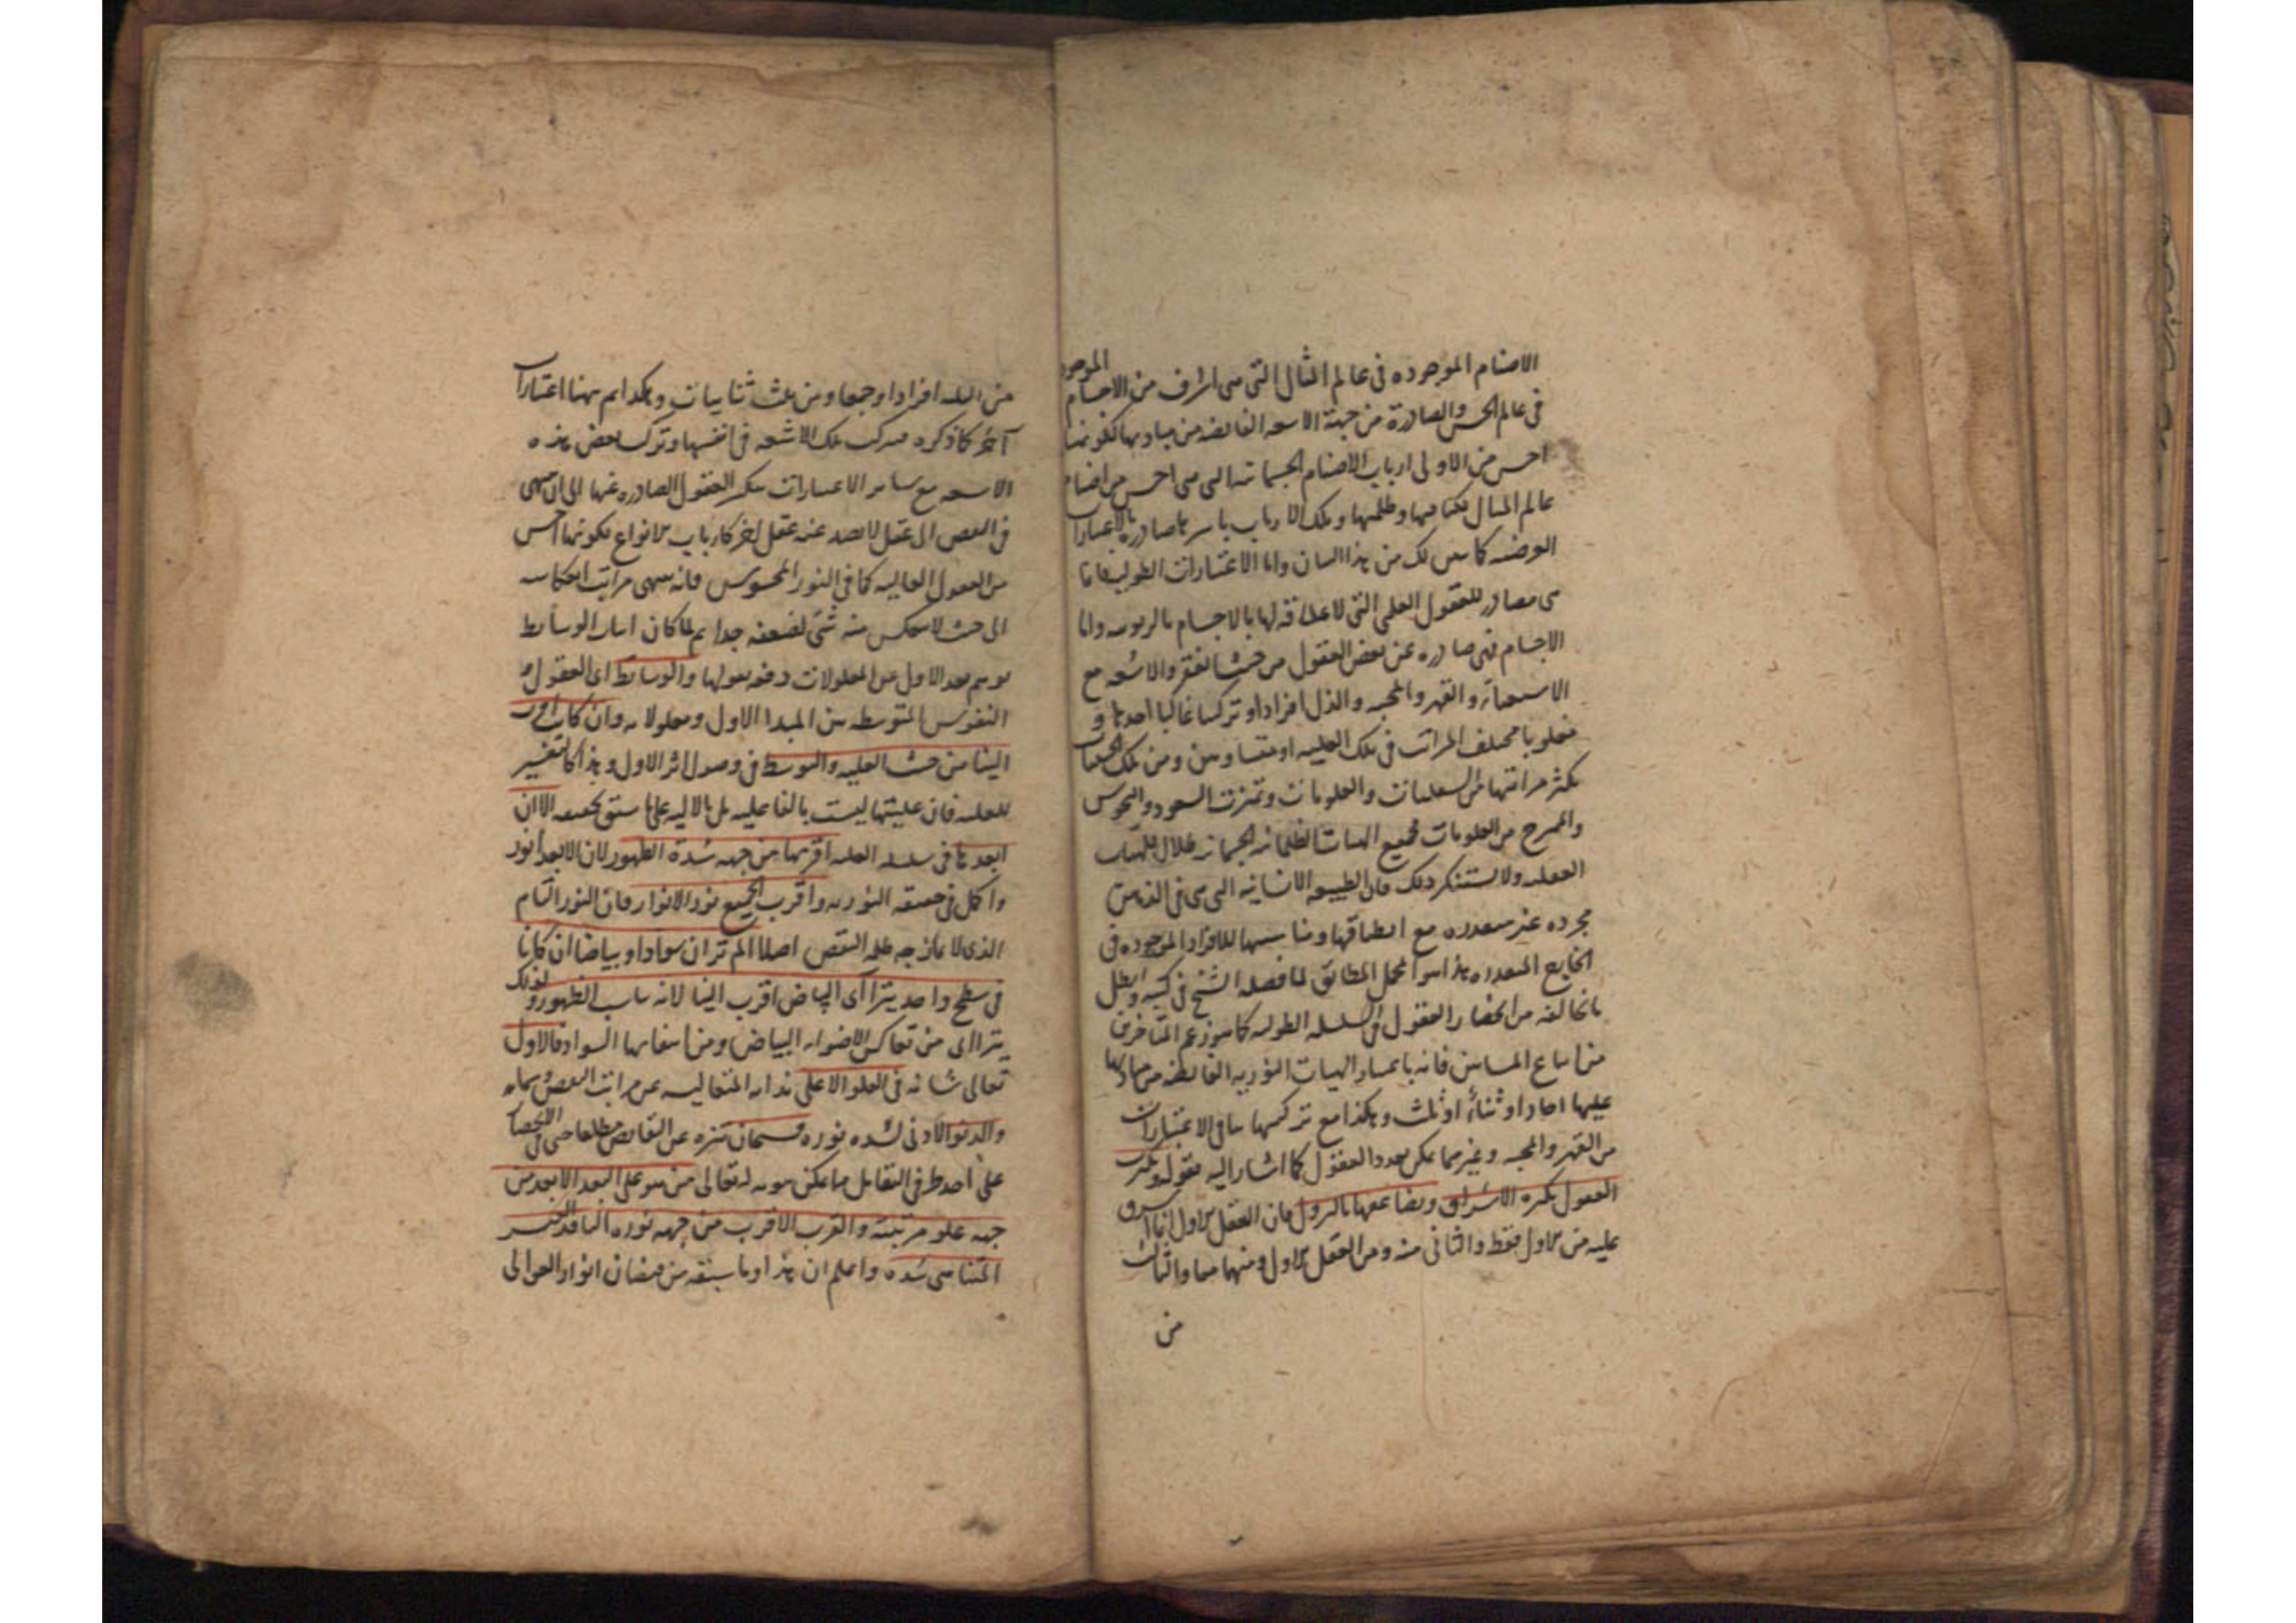 الاصنام الموجوده فى عالم المثال التى هى اشرف من الاجسام الموجود
فى عالم الحس والصادرة من جهة الاشعه الفائضه من مباديها لكونها
اخس من الاولى ارباب الاصنام الجسمانيه التى هى اخس من اصنام
عالم المثال لكثافتها وظلمتها وتلك الارباب باسرها صادره بالاعتبارات
العرضيه كما تبين لك من هذا البيان واما الاعتبارات الطوليه فانها
هى مصادر للعقول العلى التى لا علاقه لها بالاجسام بالربوبيه واما
الاجسام فهى صادره عن بعض العقول من حيث الفقر والاشعه مع
الاستغناء والقهر والمحبه والذل افرادا وتركيبا غالبا احدها و
مغلوبا مختلف المراتب فى تلك الغلبه او متساويين ومن تلك الجهات
يكثر مراتبها من السفليات والعلويات وتميزت السعود والنحوس
والممتزج من العلويات فجميع الهيات الظلمانيه الجسمانيه ظلال للهيات
العقليه ولا تستنكر ذلك فان الطبيعه الانسانيه التى هى فى الذهن
مجرده غير متقدره مع انطباقها ومناسبتها للافراد الموجوده فى
الخارج المتقدره هذا هو المجمل المطابق لما فصله الشيخ فى كتبه وابطل
ما يخالفه من انحصار العقول فى السلسله الطوليه كما هو زعم المتاخرين
من اتباع المشائين فانه باعتبار الهيات النوريه الفائضه من مباديها
عليها احاد او ثناء او ثلث وهكذا مع تركيبها بباقى الاعتبارات
من القهر والمحبه وغيرهما يمكن تعدد العقول كما اشار اليه بقوله وتكثرت
العقول بكثره الاشراق وتضاعفها بالنزول فان العقل الاول انما اشرق
عليه من الاول فقط والثانى منه ومن العقل الاول ومنهما معا والثالث
من
من الثلثه افرادا وجمعا ومن ثلث ثنائيات وهكذا ثم ههنا اعتبارات
آخر كما ذكره من تركب تلك الاشعه فى انفسها وتركب بعض هذه
الاشعه مع سائر الاعتبارات بتكثر العقول الصادره عنها الى ان ينتهى
فى النقص الى عقل لا يصدر عنه عقل اخر كارباب الانواع لكونها اخس
من العقول العاليه كما فى النور المحسوس فانه ينتهى مراتب انعكاسه
الى حيث لا ينعكس منه شئ لضعفه جدا ثم لما كان اثبات الوسائط
يوهم بعد الاول عن المعلولات دفعه بقوله والوسائط اى العقول و
النفوس المتوسطه بين المبدا الاول ومعلولاته وان كانت اقرب
الينا من حيث العليه والتوسط فى وصول اثر الاول وهذا كالتفسير
للعليه فان عليتها ليست بالفاعليه بل بالاليه على ما سبق تحقيقه الا ان
ابعدها فى سلسله العليه اقربها من جهه شدة الظهور لان الابعد انور
واكمل فى حقيقه النوريه واقرب الجميع نور الانوار فان النور التام
الذى لا يمازجه ظلمه النقص اصلا الم تر ان سوادا وبياضا ان كانا
فى سطح واحد يترااى البياض اقرب الينا لانه يناسب الظهور ولذلك
يترااى من تعاكس الاضواء البياض ومن انتفائها السواد فالاول
تعالى شانه فى العلو الاعلى بذاته المتعاليه عن مراتب النقص وسماته
والدنو الادنى لشده نوره فسبحان تنزه عن النقائص مطلقا حتى فى الانحصار
على احد طرفى التقابل مما يمكن ثبوته له تعالى من هو على البعد الابعد من
جهه علو مرتبته والقرب الاقرب من جهه نوره النافذ الغير
المتناهى شده واعلم ان هذا وما سبقه من فيضان انوار العوالى